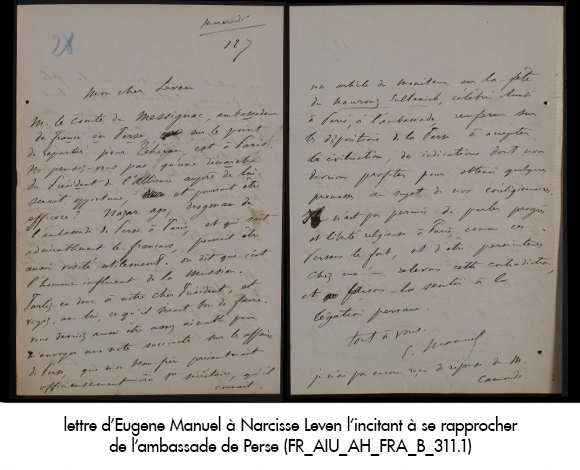 28
mercredi
127
Mon cher Leven
M. le comte de Messignac, ambassadeur
de france en Perse, sur le point
de repartir pour Téhéran est à Paris.
Ne pensez-vous pas qu'une démarche
du Président de l'Alliance auprès de lui
serait opportune, et pourrait être
efficace? Nazar aga, drogman de
l'ambassade de Perse à Paris, et qui sait
admirablement le français, pourrait être
aussi visité utilement. on dit que c'est
l'homme influent de la mission.
Parlez en donc à notre cher Président, et
voyez, avec lui, ce qu'il serait bon de faire.
vous devriez aussi être assez aimable pour
envoyer une note succincte sur les affaires
de Perse, que mon beau-père présenterait
officieusement au 1er secrétaire, qu'il
connait.
un article du moniteur sur la fête
du Nourouz Sultanieh, célébrée lundi
à Paris, à l'ambassade renferme sur
les dispositions de la Perse à accepter
la civilisation, des indications dont nous
devrions profiter pour obtenir quelques
promesses au sujet de nos coreligionnaires.
Il n'est pas permis de parler progrès
et liberté religieuse à Paris, comme ces
Persans le font, et d'être persécuteurs
chez eux; relevons cette contradiction,
et faisons-la sentir à la
légation persane.
tout à vous.
E. Manuel
je n'ai pas encore reçu de réponse de M.
Camondo.
lettre d'Eugene Manuel à Narcisse Leven l'incitant à se rapprocher
de l'ambassade de Perse (FR_AIU_AH_FRA_B_311.1)